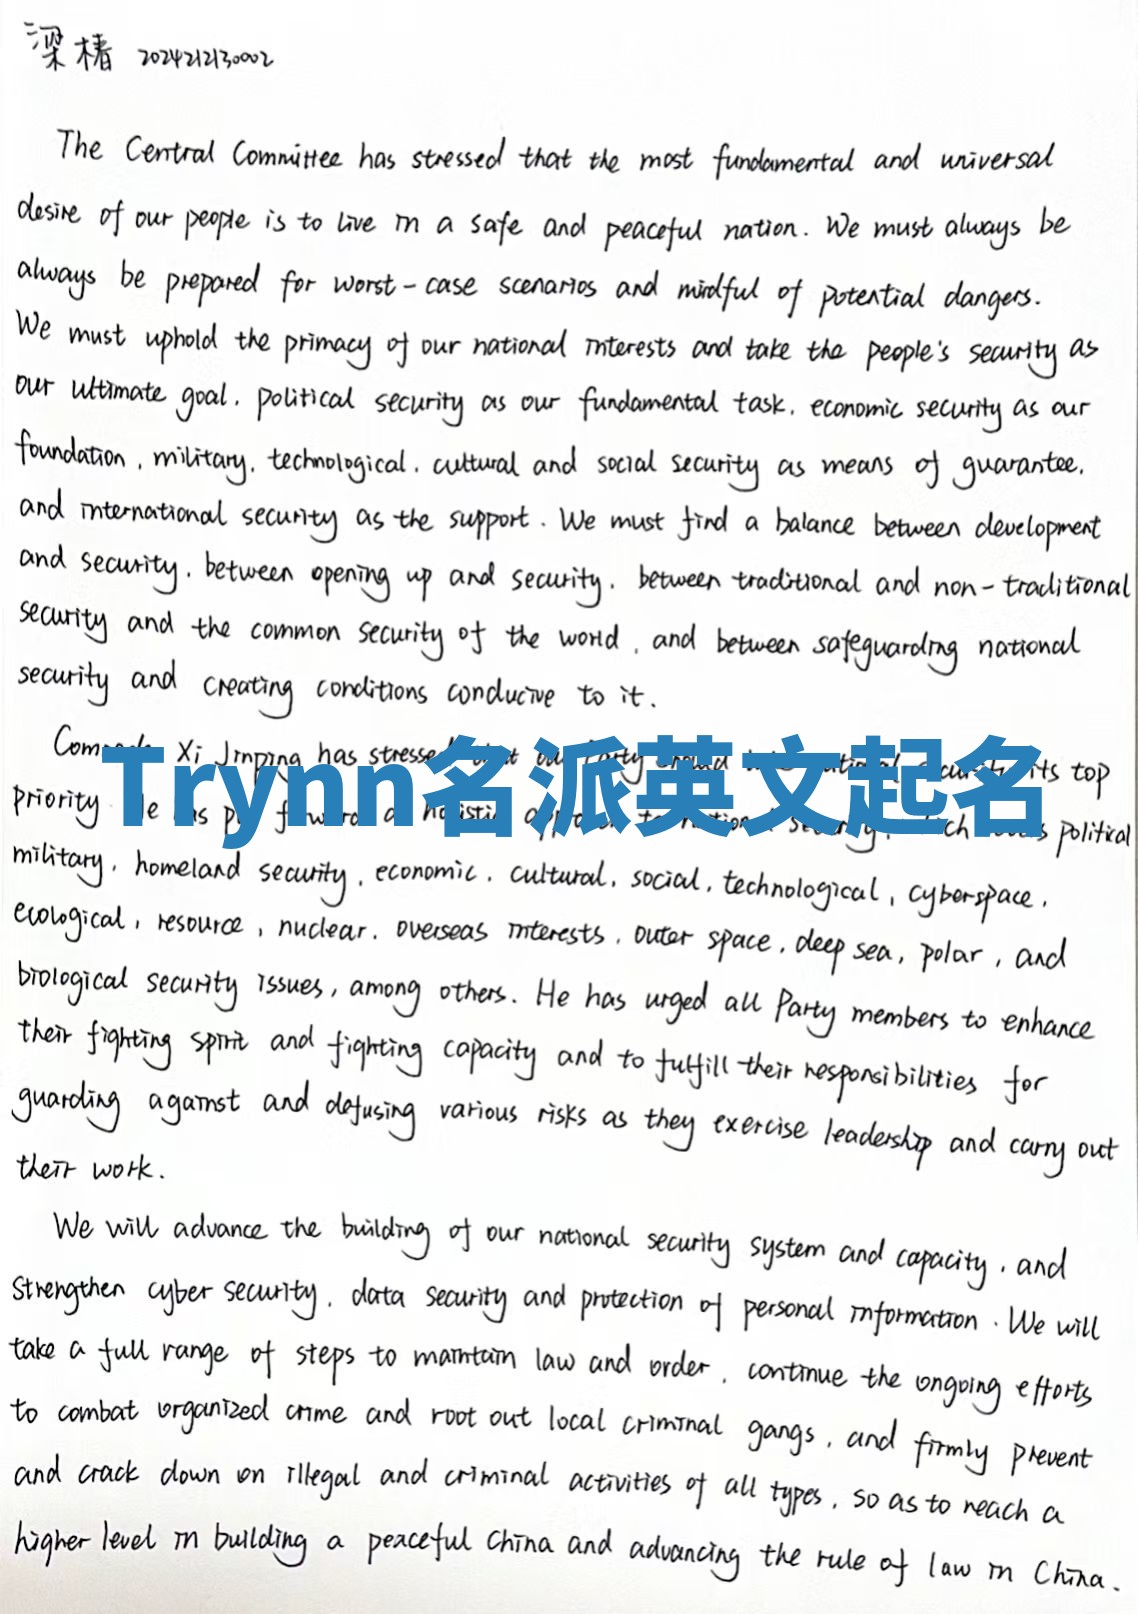 梁椿 2024212130002
The Central Committee has stressed that the most fundamental and universal
desire of our people is to live in a safe and peaceful nation. We must always be
always be prepared for worst-case scenarios and mindful of potential dangers.
We must uphold the primacy of our national interests and take the people's security as
our ultimate goal, political security as our fundamental task, economic security as our
foundation, military, technological, cultural and social security as means of guarantee,
and international security as the support. We must find a balance between development
and security, between opening up and security, between traditional and non-traditional
security and the common security of the world, and between safeguarding national
security and creating conditions conducive to it.
Xi Jinping has stressed its top
Trynn名派英文起名
priority political
military, homeland security, economic, cultural, social, technological, cyberspace,
ecological, resource, nuclear, overseas interests, outer space, deep sea, polar, and
biological security issues, among others. He has urged all Party members to enhance
their fighting spirit and fighting capacity and to fulfill their responsibilities for
guarding against and defusing various risks as they exercise leadership and carry out
their work.
We will advance the building of our national security system and capacity, and
strengthen cyber security, data security and protection of personal information. We will
take a full range of steps to maintain law and order, continue the ongoing efforts
to combat organized crime and root out local criminal gangs, and firmly prevent
and crack down on illegal and criminal activities of all types, so as to reach a
higher level in building a peaceful China and advancing the rule of law in China.